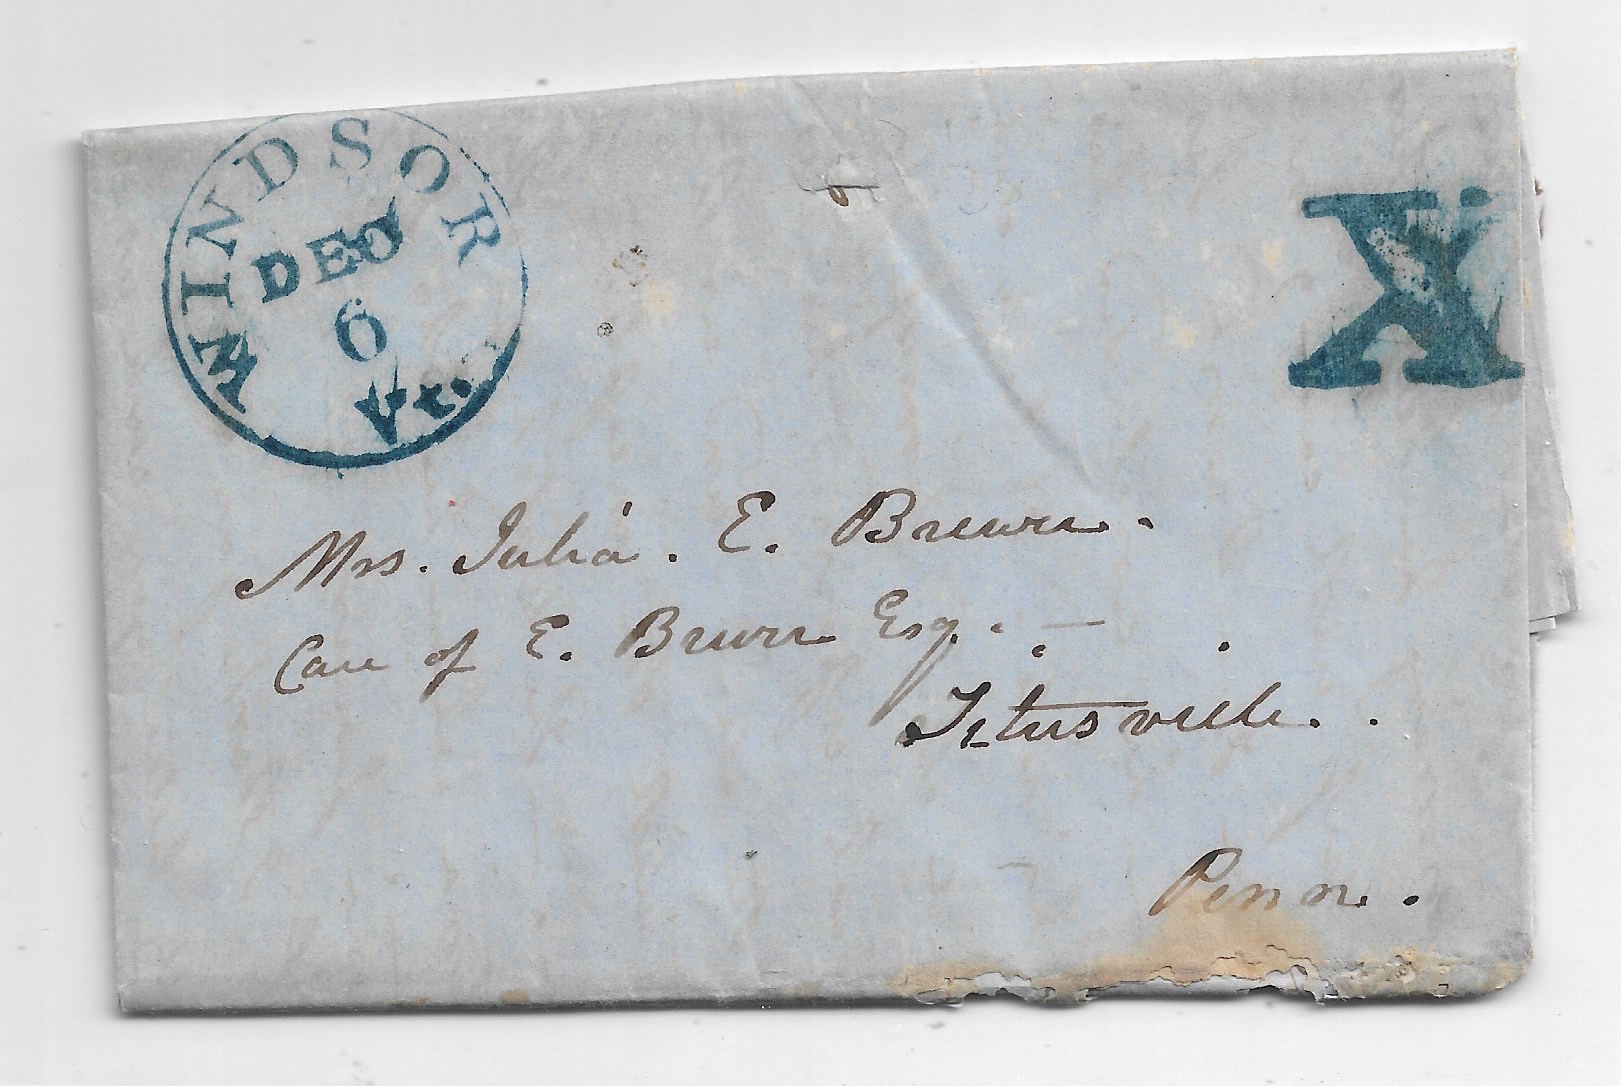 WINDSOR
DEC
6
Vt.
X
Mrs. Julia. E. Brewer.
Care of E. Brewer Esq. —
Titusville.
Penn.